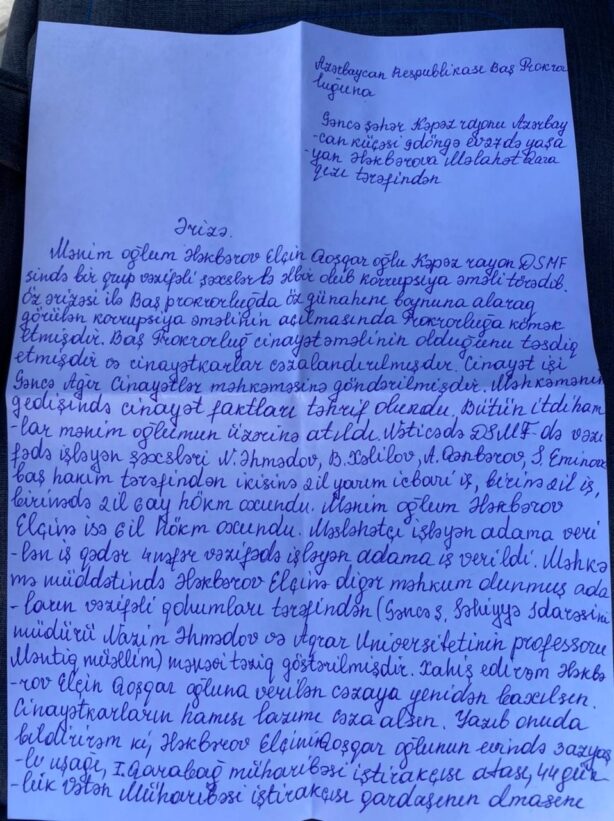 Azərbaycan Respublikası Baş Prokro
luğuna
Gəncə şəhər Kəpəz rayonu Azərbay
-can küçəsi 9döngə ev27də yaşa
-yan Ələkbərova Məlahət Qara
qızı tərəfindən
Ərizə.
Mənim oğlum Ələkbərov Elçin Qoşqar oğlu Kəpəz rayon DSMF
sində bir qrup vəzifəli şəxslər lə əlbir olub korrupsiya əməli törədib.
Öz ərizəsi ilə Baş prokrorluğda öz günahene boynuna alaraq
görülən korrupsiya əməlinin açılmasında Prokrorluğa kömək
etmişdir. Baş Prokrorluğ cinayət əməlinin olduğunu təsdiq
etmişdir və cinayətkarlar cəzalandırılmışdır. Cinayət işi
Gəncə Ağır Cinayətlər məhkəməsinə göndərilmişdir. Məhkəmənin
gedişində cinayət faktları təhrif olundu. Bütün ittiham
-lar mənim oğlumun üzərinə atıldı. Nəticədə DSMF də vəzi
fədə işləyən şəxsləri N.Əhmədov, B.Xəlilov, A.Qənbərov, S.Eminova
baş hakim tərəfindən ikisinə 2il yarım icbari iş, birinə 2il iş,
birinədə 2il 6ay hökm oxundu. Mənim oğlum Ələkbərov
Elçinə isə 6il hökm oxundu. Məsləhətçi işləyən adama veri
-lən iş qədər 4nəfər vəzifədə işləyən adama iş verildi. Məhkə
mə müddətində Ələkbərov Elçinə digər məhkum olunmuş ada
-ların vəzifəli qohumları tərəfindən (Gəncə ş, Səhiyyə İdarəsini
müdürü Nazim Əhmədov və Aqrar Universitetinin professoru
Məntiq müəllim) mənəvi təziq göstərilmişdir. Xahiş edirəm Ələkbə
-rov Elçin Qoşqar oğluna verilən cəzaya yenidən baxılsen.
Cinayətkarların hamısı lazımi cəza alsen. Yazıb onuda
bildirirəm ki, Ələkbərov Elçinin Qoşqar oğlunun evində 3 azyaş
-lı uşağı, I.Qarabağ müharibəsi iştirakçısı atası, 44 gün
-lük Vətən Müharibəsi iştirakçısı qardaşının olmasene